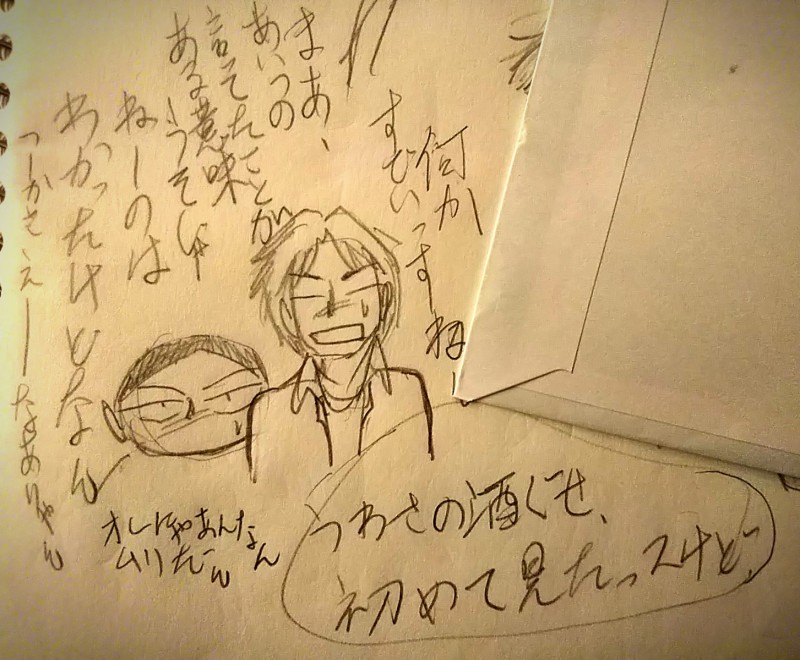 何か
すごいっすね
まあ、
あいつの
言ってたことが
ある意味
うそじゃ
ねーのは
わかったけどなん
つーかさぇーなありゃん
オレにゃあんなん
ムリだーん
うわさの酒ぐせ、
初めて見たっスけど、